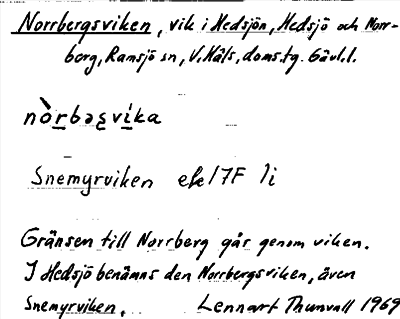 Norrbergsviken, vik i Hedsjön, Hedsjö och Norr-
berg, Ramsjö sn, V. Häls. doms.tg. Gävl.l.
nòrbəsvika
Snemyrviken ek 17F 1i
Gränsen till Norrberg går genom viken.
I Hedsjö benämns den Norrbergsviken, även
Snemyrviken. Lennart Thunvall 1969